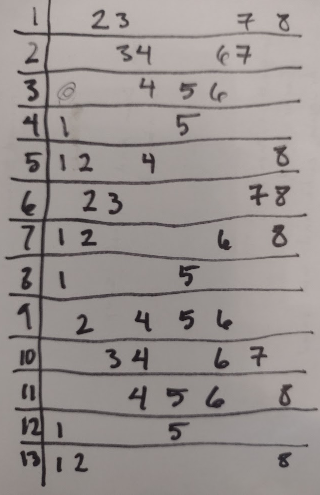 1 2 3 7 8
2 3 4 6 7
3 4 5 6
4 1 5
5 1 2 4 8
6 2 3 7 8
7 1 2 6 8
8 1 5
9 2 4 5 6
10 3 4 6 7
11 4 5 6 8
12 1 5
13 1 2 8